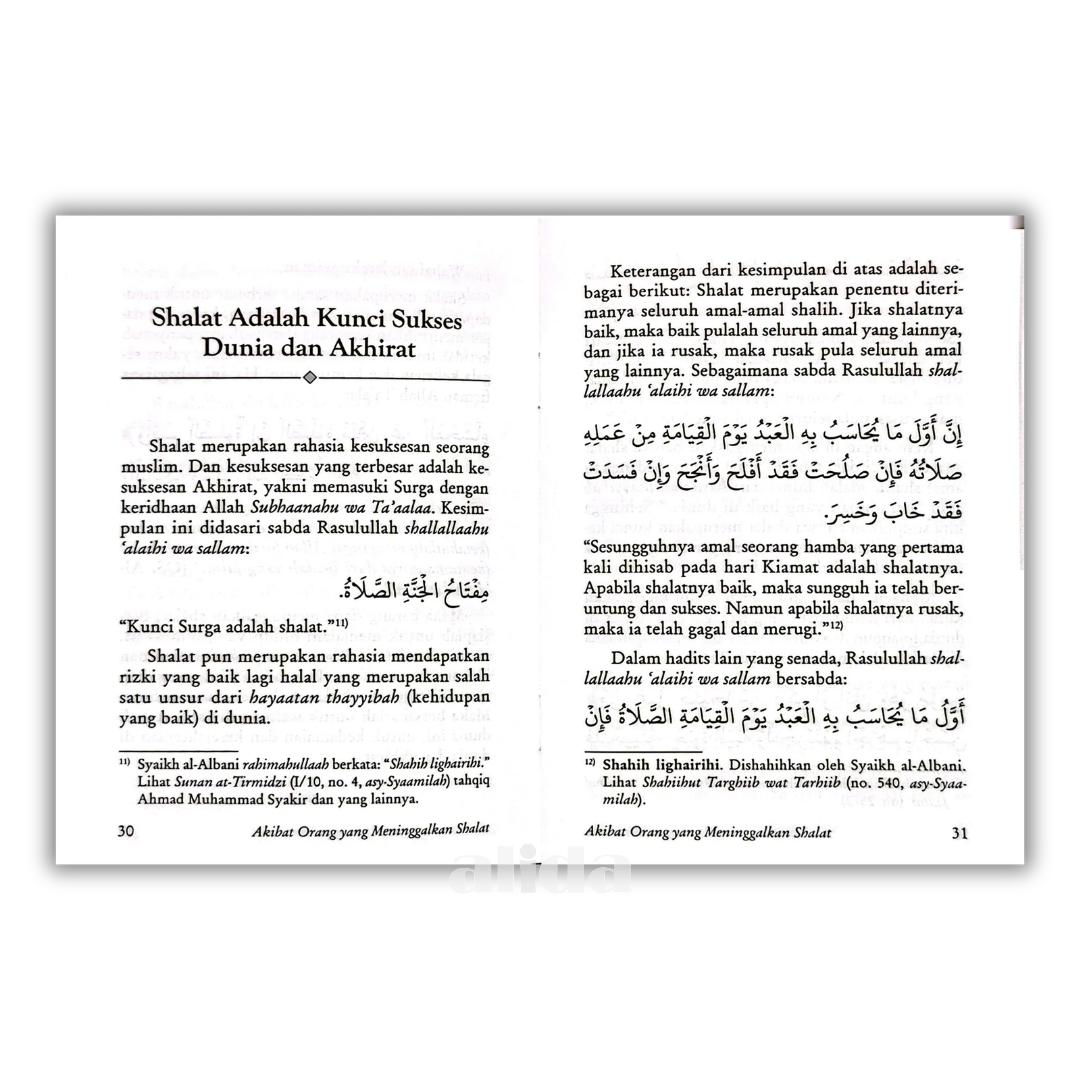 Shalat Adalah Kunci Sukses
Dunia dan Akhirat
Shalat merupakan rahasia kesuksesan seorang
muslim. Dan kesuksesan yang terbesar adalah ke-
suksesan Akhirat, yakni memasuki Surga dengan
keridhaan Allah Subhaanahu wa Ta'aalaa. Kesim-
pulan ini didasari sabda Rasulullah shallallaahu
‘alaihi wa sallam:
مِفْتَاحُ الْجَنَّةِ الصَّلَاةُ.
“Kunci Surga adalah shalat.”11)
Shalat pun merupakan rahasia mendapatkan
rizki yang baik lagi halal yang merupakan salah
satu unsur dari hayaatan thayyibah (kehidupan
yang baik) di dunia.
11) Syaikh al-Albani rahimahullaah berkata: “Shahih lighairihi.”
Lihat Sunan at-Tirmidzi (I/10, no. 4, asy-Syaamilah) tahqiq
Ahmad Muhammad Syakir dan yang lainnya.
30 Akibat Orang yang Meninggalkan Shalat
Keterangan dari kesimpulan di atas adalah se-
bagai berikut: Shalat merupakan penentu diteri-
manya seluruh amal-amal shalih. Jika shalatnya
baik, maka baik pulalah seluruh amal yang lainnya,
dan jika ia rusak, maka rusak pula seluruh amal
yang lainnya. Sebagaimana sabda Rasulullah shal-
lallaahu ‘alaihi wa sallam:
إِنَّ أَوَّلَ مَا يُحَاسَبُ بِهِ الْعَبْدُ يَوْمَ الْقِيَامَةِ مِنْ عَمَلِهِ
صَلَاتُهُ فَإِنْ صَلُحَتْ فَقَدْ أَفْلَحَ وَأَنْجَحَ وَإِنْ فَسَدَتْ
فَقَدْ خَابَ وَخَسِرَ.
“Sesungguhnya amal seorang hamba yang pertama
kali dihisab pada hari Kiamat adalah shalatnya.
Apabila shalatnya baik, maka sungguh ia telah ber-
untung dan sukses. Namun apabila shalatnya rusak,
maka ia telah gagal dan merugi.”12)
Dalam hadits lain yang senada, Rasulullah shal-
lallaahu ‘alaihi wa sallam bersabda:
أَوَّلُ مَا يُحَاسَبُ بِهِ الْعَبْدُ يَوْمَ الْقِيَامَةِ الصَّلَاةُ فَإِنْ
12) Shahih lighairihi. Dishahihkan oleh Syaikh al-Albani.
Lihat Shahiihut Targhiib wat Tarhiib (no. 540, asy-Syaa-
milah).
Akibat Orang yang Meninggalkan Shalat 31
alida